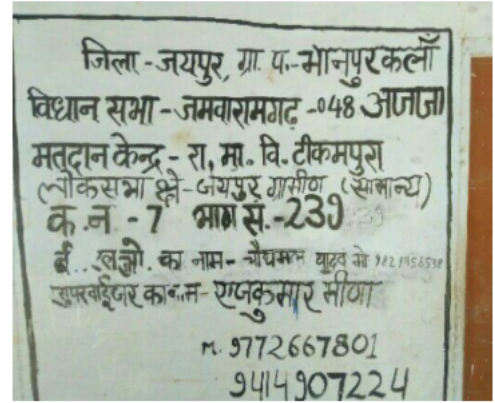 जिला - जयपुर, ग्रा. प.- भानपुरकलाँ
विधान सभा - जमवारामगढ़ -048 अजजा
मतदान केन्द्र - रा, मा. वि. टीकमपुरा
लोकसभा क्षे - जयपुर ग्रामीण (सामान्य)
क. न. - 7 भाग सं. -239
का नाम - चौथमल यादव मो
सुपरवाईजर का नाम - राजकुमार मीणा
M. 9772667801
9414907224